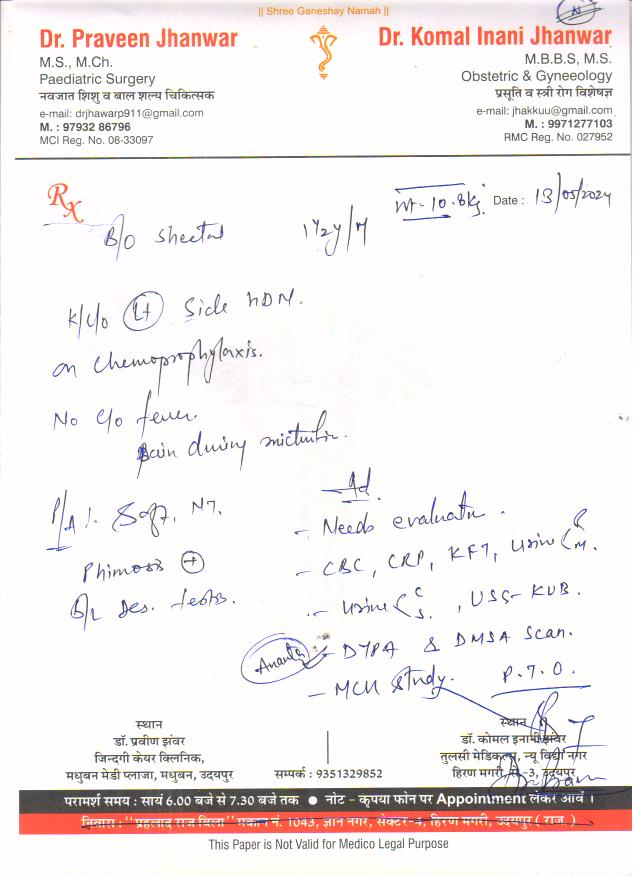 || Shree Ganeshay Namah ||
Dr. Praveen Jhanwar
M.S., M.Ch.
Paediatric Surgery
नवजात शिशु व बाल शल्य चिकित्सक
e-mail: drjhawarp911@gmail.com
M. : 97932 86796
MCI Reg. No. 08-33097
Dr. Komal Inani Jhanwar
M.B.B.S, M.S.
Obstetric & Gyneeology
प्रसूति व स्त्री रोग विशेषज्ञ
e-mail: jhakkuu@gmail.com
M. : 9971277103
RMC Reg. No. 027952
Rx
Wt. 10.8kg. Date : 13/05/2024
B/O Sheetal 1 1/2 y/M
K/C/O Lt Side HDN.
on Chemoprophylaxis.
No C/O fever.
Pain during micturition.
P/A :. Soft, NT.
Phimosis +
B/L Des. testis.
Ad.
- Needs evaluation.
- CBC, CRP, KFT, Urine R M.
- Urine C S. , USG-KUB.
- DTPA & DMSA Scan.
Ananta
- MCU Study.
P.T.O.
स्थान
डॉ. प्रवीण झंवर
जिन्दगी केयर क्लिनिक,
मधुबन मेडी प्लाजा, मधुबन, उदयपुर
सम्पर्क : 9351329852
स्थान
डॉ. कोमल इनाणी झंवर
तुलसी मेडिकल, न्यू विद्या नगर
हिरण मगरी, से-3, उदयपुर
परामर्श समय : सायं 6.00 बजे से 7.30 बजे तक ● नोट - कृपया फोन पर Appointment लेकर आवें ।
निवास : "प्रहलाद राज विला" मकान नं. 1043, ज्ञान नगर, सेक्टर-4, हिरण मगरी, उदयपुर ( राज. )
This Paper is Not Valid for Medico Legal Purpose